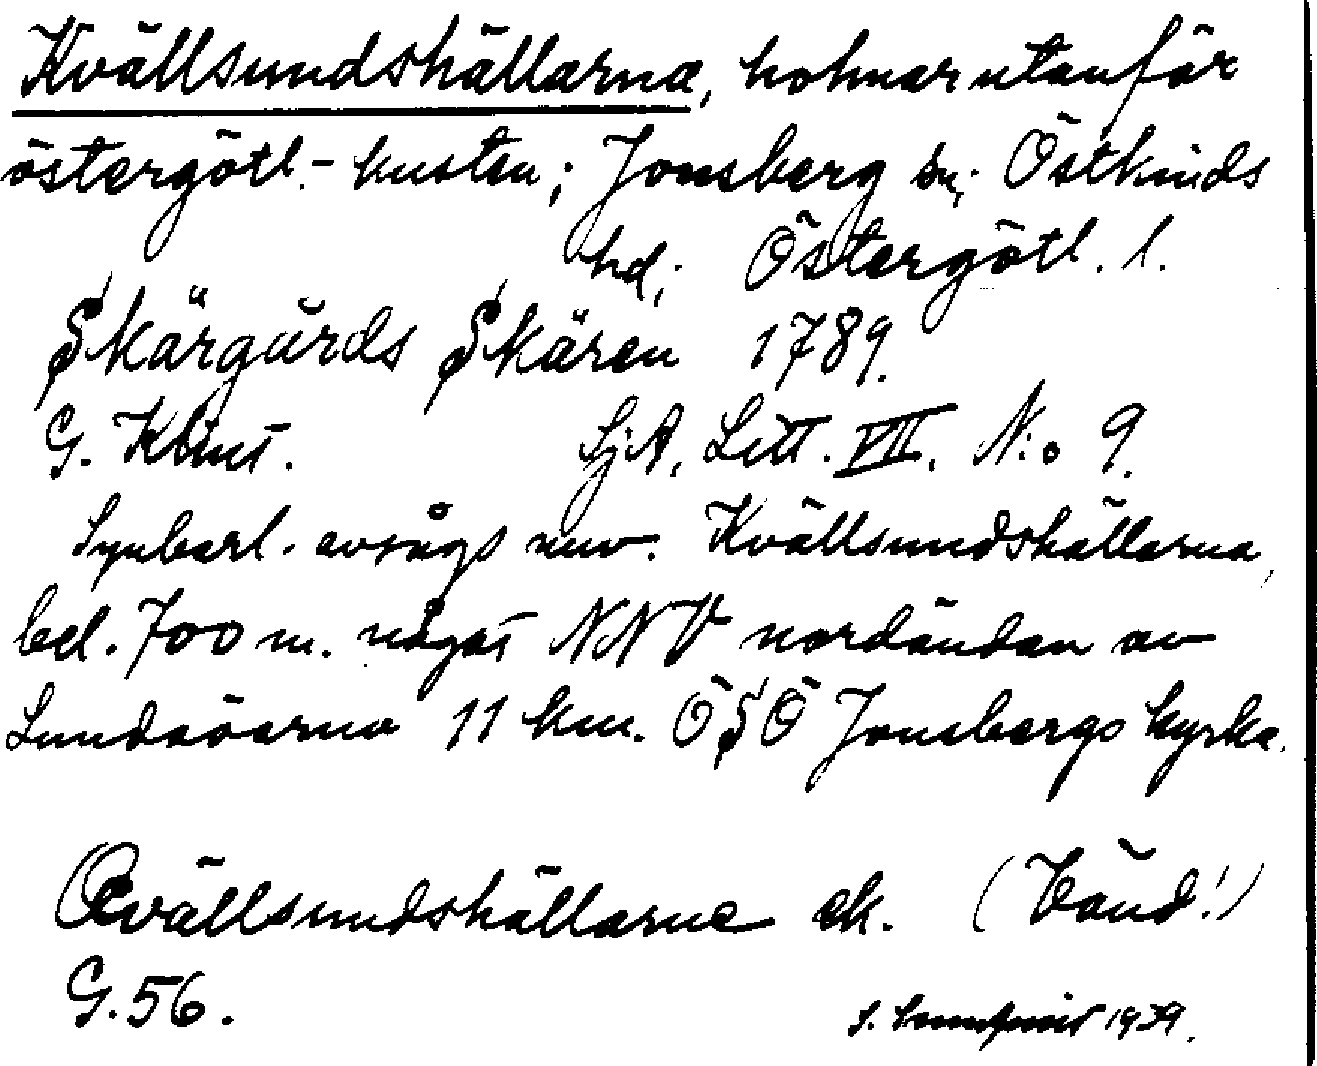 Kvällsundshällarna, holmar utanför
östergötl.-kusten; Jonsberg sn; Östkinds
hd; Östergötl. l.
Skärgårds Skären 1789.
G. Klint. SjA, Litt. VII. N:o 9.
Synbarl. avsågs nuv. Kvällsundshällarna,
bel. 700 m. något NNV nordändan av
Lundaöarna 11 km. ÖSÖ Jonsbergs kyrka.
Qvällsundshällarne ek. (Vänd!)
G. 56.
S. 1939.